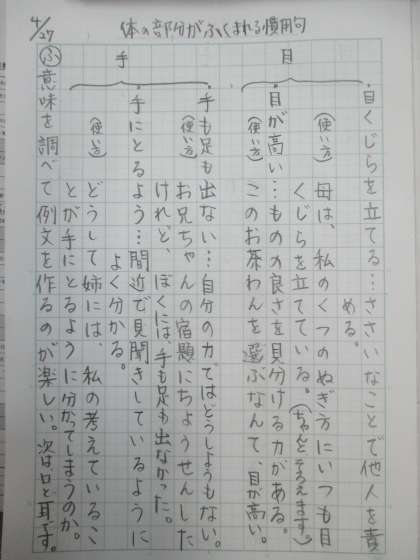 4/27
体の部分がふくまれる慣用句
目
・目くじらを立てる…ささいなことで他人を責
める。
(使い方) 母は、私のくつのぬぎ方にいつも目
くじらを立てている。(ちゃんとそろえます。)
・目が高い…ものの良さを見分ける力がある。
(使い方) このお茶わんを選ぶなんて、目が高い。
手
・手も足も出ない…自分の力ではどうしようもない。
(使い方) お兄ちゃんの宿題にちょうせんした
けれど、ぼくには、手も足も出なかった。
・手にとるよう…間近で見聞きしているように
よく分かる。
(使い方) どうして姉には、私の考えているこ
とが手にとるように分かってしまうのか。
ふ 意味を調べて例文を作るのが楽しい。次は口と耳です。